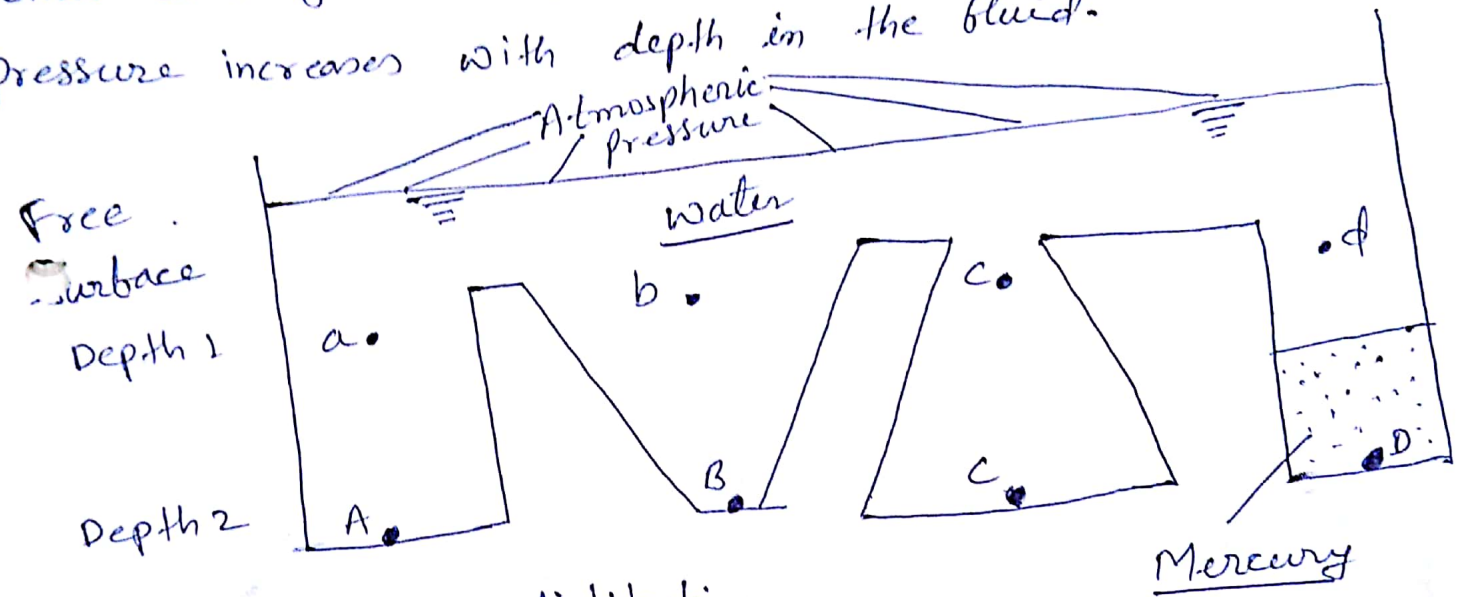 Pressure increases with depth in the fluid.
Atmospheric
Pressure
Free
Surface
water
a
b
c
d
Depth 1
Depth 2
A
B
C
D
Mercury